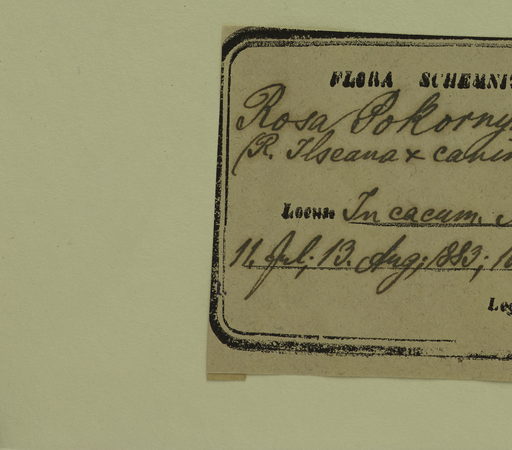 FLORA SCHEMNIT
Rosa Pokorny
(R. Ilseana x canin
Locus In cacum.
11. Jul; 13. Aug; 883;
Leg